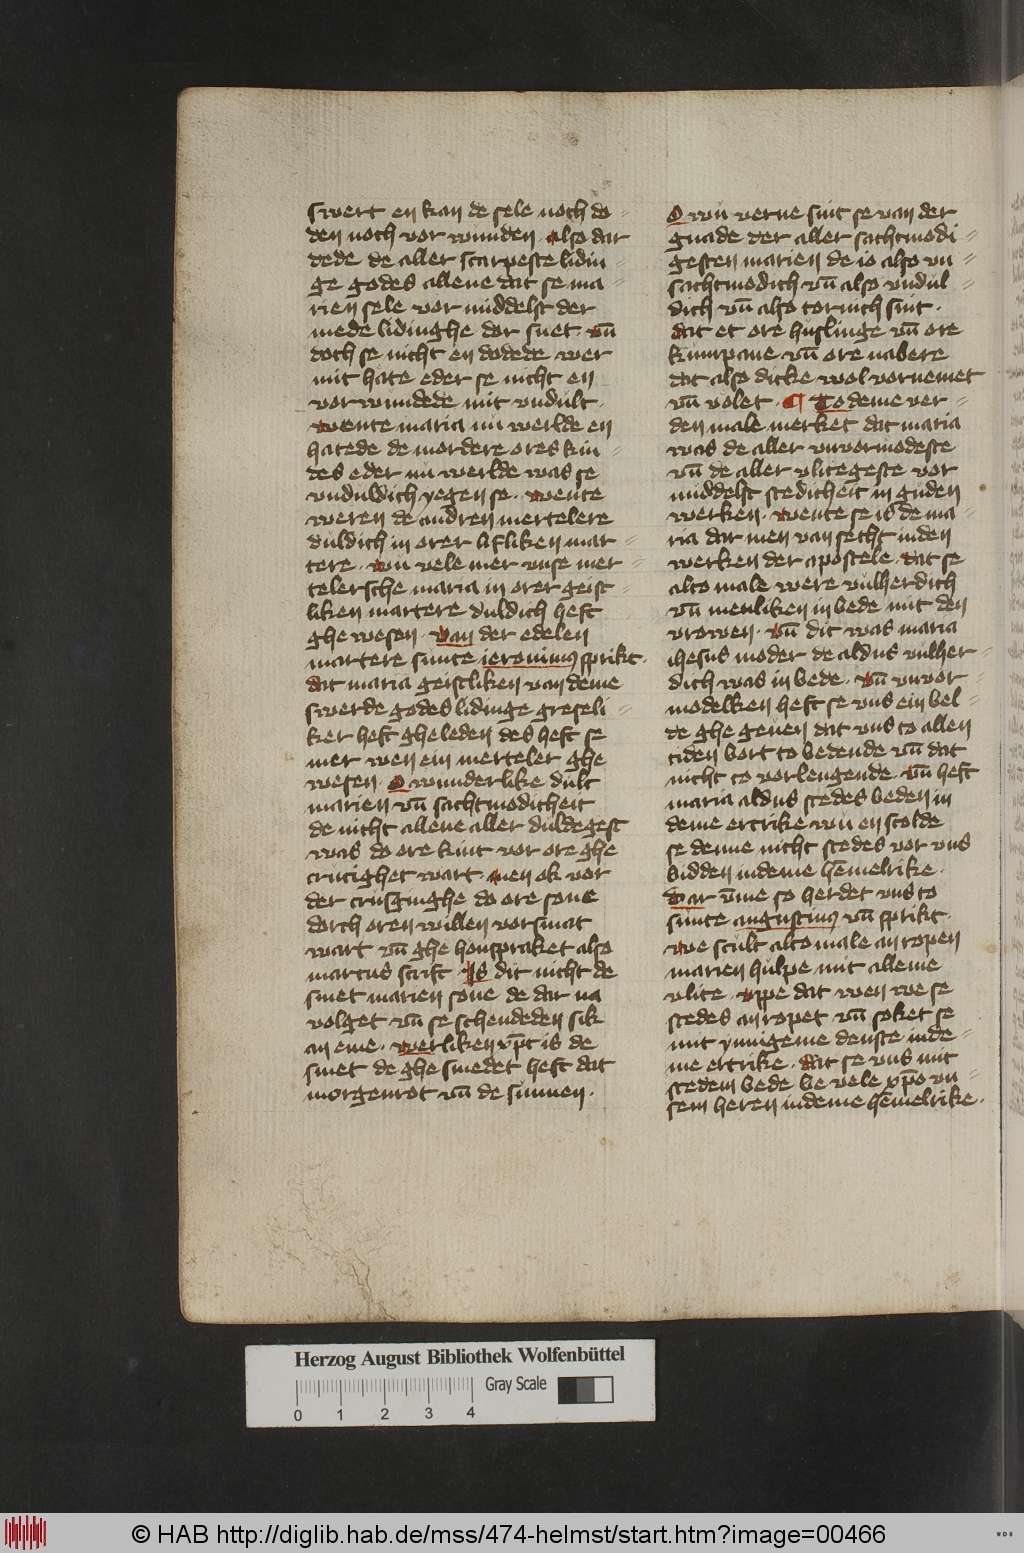 swert en kan de sele noch do=
den noch vor wunden. also dar
dede de aller scarpeste lidin=
ge godes allene dat se ma=
rien sele vor middelst der
mede lidinghe dor snet. vn̄
doch se nicht en dodede wer
mit hate eder se nicht en
vorwundede mit vndult.
wente maria nů werlde en
hatede de mordere ores kin=
des eder nů werlde was se
vnduldich yegen se. wente
weren de andren mertelere
duldich in orer lifliken mar=
tere. wu vele mer vnse mer=
telersche maria in orer geist=
liken martere duldich heft
ghe wesen. van der edelen
martere sunte ieronimus sprikt.
dat maria geistliken van deme
swerde godes lidinge greseli=
ker heft gheleden des heft se
mer wen ein merteler ghe
wesen. O wunderlike dult
marien vn̄ sachtmodicheit
de nicht allene aller duldegest
was do ore kint vor ore ghe
crucighet wart. men ok vor
der cruszinghe do ore sone
dorch oren willen vorsmat
wart vn̄ ghe honspraket also
marcus scrift Is dit nicht de
smet marien sone de dar na
volget vn̄ se schendeden sik
an eme. werliken xp̄c is de
smet de ghe smedet heft dat
morgenrot vn̄ de sunnen.
O wu verne sint se van der
gnade der aller sachtmodi=
gesten marien de io also vn=
sachtmodich vn̄ also vndul=
dich vn̄ also tornich sint.
dat et ore huslinge vn̄ ore
kumpane vn̄ ore nabere
dat also dicke wol vornemet
vn̄ volet. ¶ To deme ver=
den male merket dat maria
was de aller vnvormodeste
vn̄ de aller vlitegeste vor
middelst stedicheit in guden
werken. wente se is de ma=
ria dar men van secht in den
werken der apostele. dat se
alto male were vulherdich
vn̄ menliken in bede mit den
vrowen. vn̄ dit was maria
ihesus moder de aldus vulher=
dich was in bede. vn̄ vnvor=
modelken heft se vns ein bel=
de ghe geuen dat vns to allen
tiden bort to bedende vn̄ dat
nicht to vorlengende. vn̄ heft
maria aldus stedes beden in
deme ertrike wu en scolde
se denne nicht stedes vor vns
bidden in deme hēmelrike.
Dar vm̄e so herdet vns to
sunte augustinus vn̄ sprikt.
we scult alto male an ropen
marien hulpe mit alleme
vlite. vppe dat wen we se
stedes an ropet vn̄ soket se
mit ynnigeme denste in de=
me ertrike. dat se vns mit
stedem bede be vele xp̄o vn=
sem heren in deme hēmelrike.
Herzog August Bibliothek Wolfenbüttel
Gray Scale
0 1 2 3 4
© HAB http://diglib.hab.de/mss/474-helmst/start.htm?image=00466
WDB